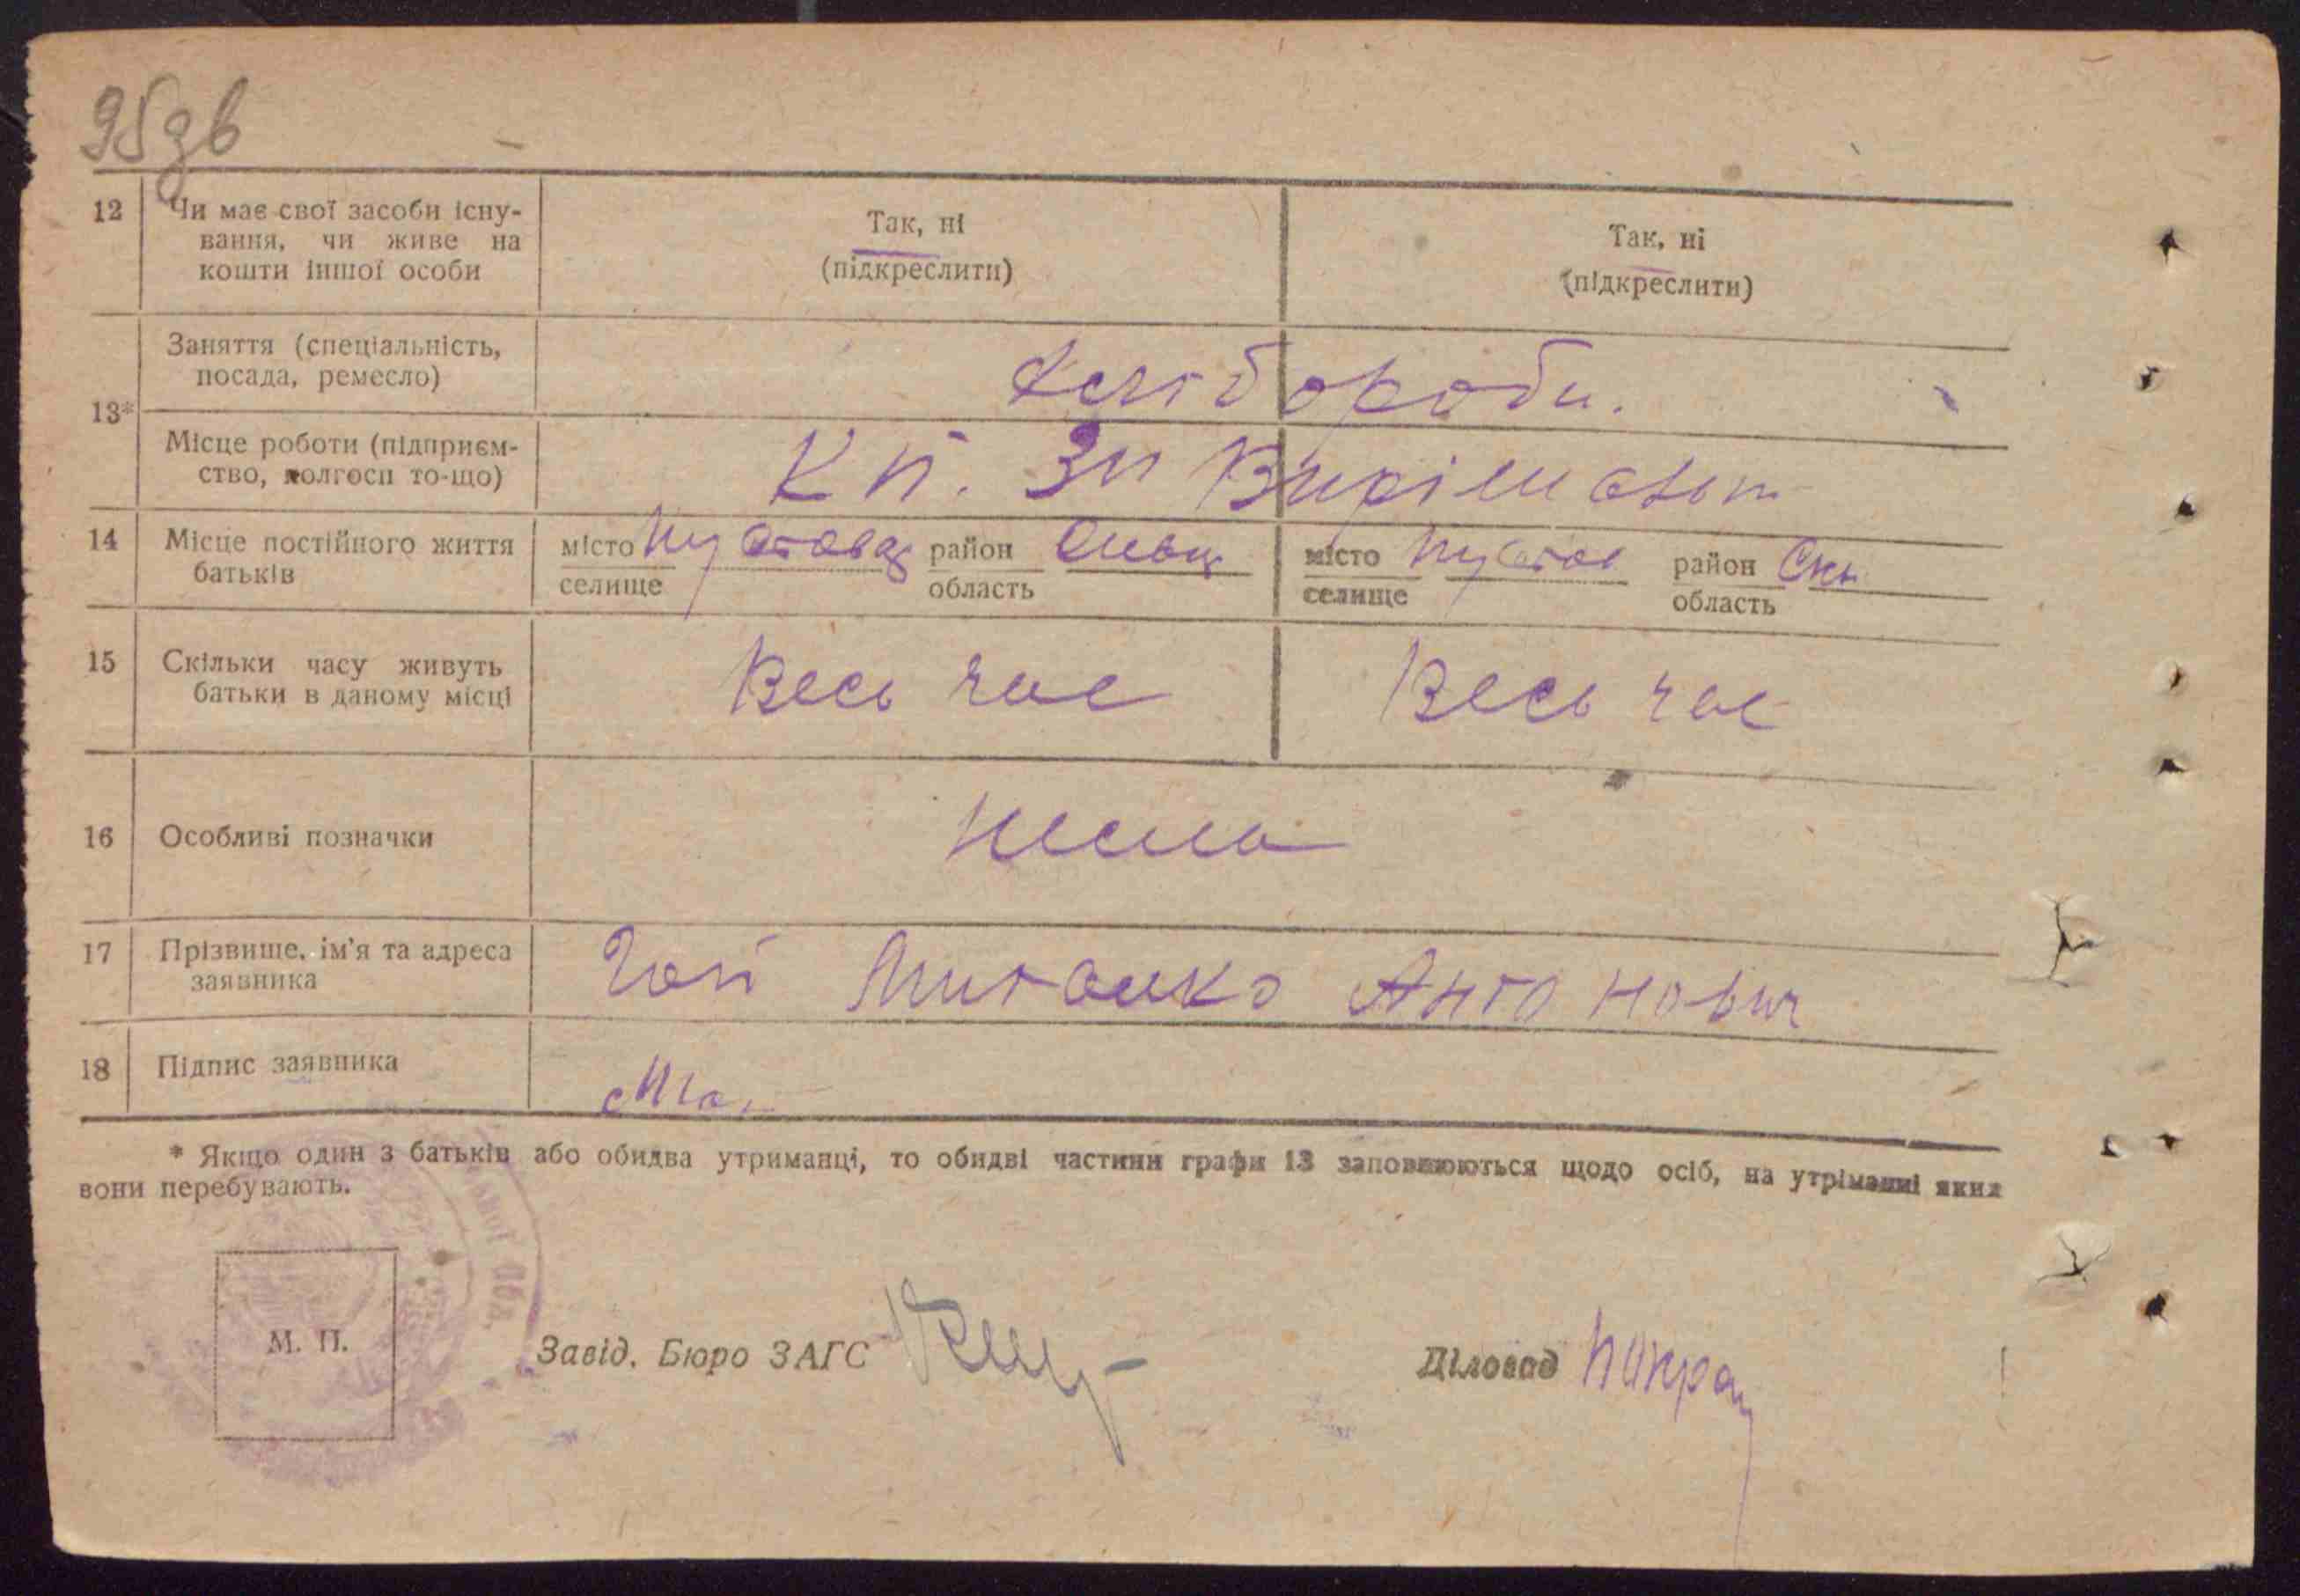 95зв
12 Чи має свої засоби існу-
вання, чи живе на
кошти іншої особи
Так, ні
(підкреслити)
Так, ні
(підкреслити)
13*
Заняття (спеціальність,
посада, ремесло)
Хлібороби.
Місце роботи (підприєм-
ство, колгосп то-що)
14 Місце постійного життя
батьків
місто
селище
район
область
місто
селище
район
область
15 Скільки часу живуть
батьки в даному місці
Весь час
Весь час
16 Особливі позначки
Нема
17 Прізвище, ім'я та адреса
заявника
Гой Антонович
18 Підпис заявника
* Якщо один з батьків або обидва утриманці, то обидві частини графи 13 заповнюються щодо осіб, на утріманні яких
вони перебувають.
М. П.
Завід. Бюро ЗАГС
Діловод